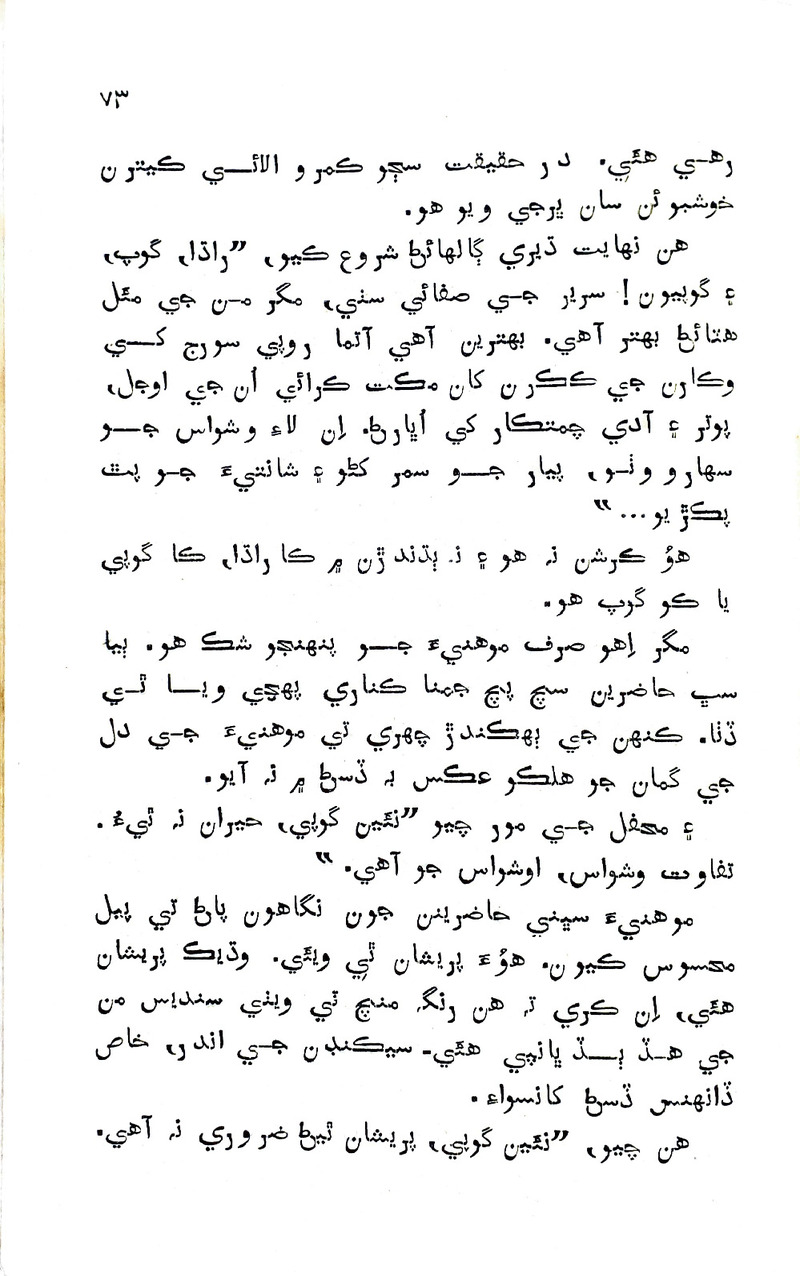 ٧٣
رهي هئي. در حقيقت سڄو ڪمرو الائي ڪيترن
خوشبوئن سان ڀرجي ويو هو.
هن نهايت ڌيري ڳالهائڻ شروع ڪيو، ”راڌا، گوپ،
۽ گوپيون! سرير جي صفائي سٺي، مگر من جي مئل
هٽائڻ بهتر آهي. بهترين آهي آتما روپي سورج کي
وڪارن جي ڪڪرن کان مڪت ڪرائي اُن جي اوجل،
پوتر ۽ آدي چمتڪار کي اُڀارڻ. اِن لاءِ وشواس جو
سهارو وٺو، پيار جو سمر کڻو ۽ شانتيءَ جو پٿ
پڪڙيو...“
هوُ ڪرشن نہ هو ۽ نہ ٻڌندڙن ۾ ڪا راڌا، ڪا گوپي
يا ڪو گوپ هو.
مگر اِهو صرف موهنيءَ جو پنهنجو شڪ هو. ٻيا
سڀ حاضرين سچ پچ جمنا ڪناري پهچي ويا ٿي
ڏٺا. ڪنهن جي ٻهڪندڙ چهري تي موهنيءَ جي دل
جي گمان جو هلڪو عڪس بہ ڏسڻ ۾ نہ آيو.
۽ محفل جي مور چيو ”نئين گوپي، حيران نہ ٿيءُ.
تفاوت وشواس، اوشواس جو آهي.“
موهنيءَ سڀني حاضرينن جون نگاهون پاڻ تي پيل
محسوس ڪيون. هوُءَ پريشان ٿي ويئي. وڌيڪ پريشان
هئي، اِن ڪري تہ هن رنگہ منچ تي ويٺي سنديس من
جي هڏ ٻڏ ڀانپي هئي۔ سيڪنڊن جي اندر، خاص
ڏانهنس ڏسڻ کانسواءِ.
هن چيو، ”نئين گوپي، پريشان ٿيڻ ضروري نہ آهي.